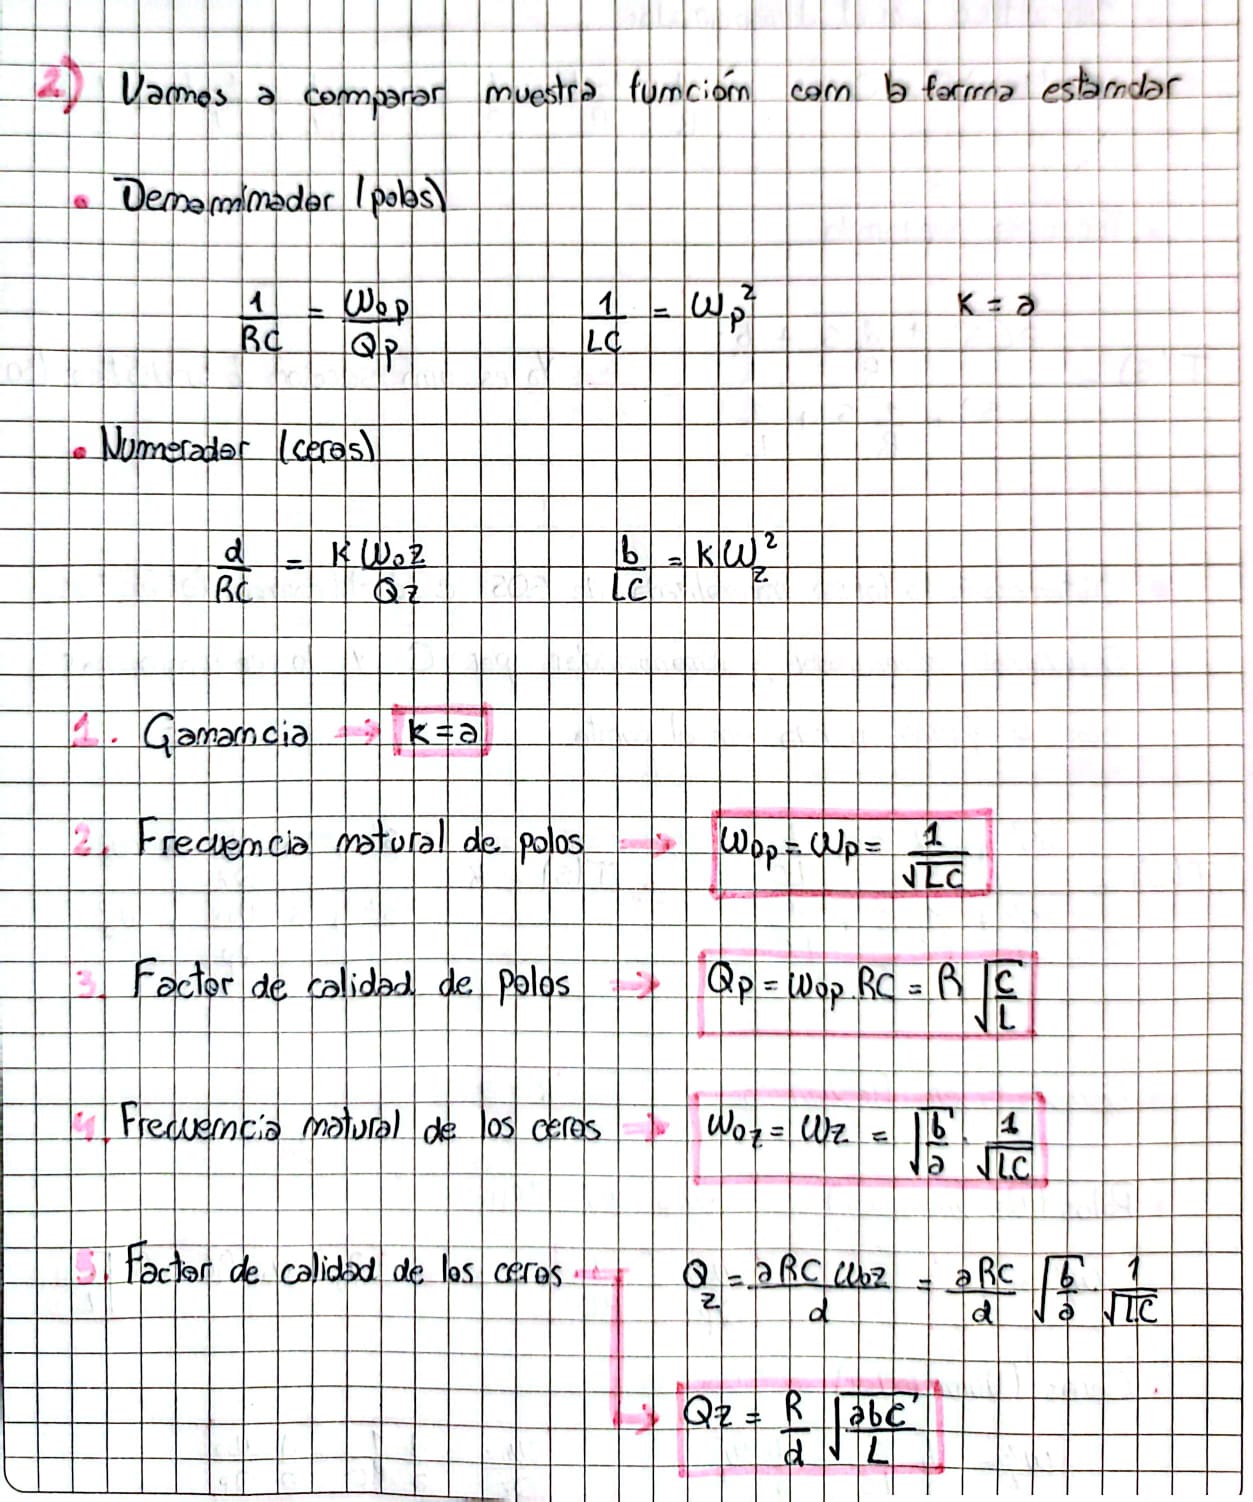 2) Vamos a comparar nuestra función con la forma estandar
• Denominador (polos)
1/RC = ω₀p/Qp    1/LC = ωp²    K = a
• Numerador (ceros)
d/RC = K ω₀z/Qz    b/LC = K ωz²
1. Ganancia → k = a
2. Frecuencia natural de polos → ω₀p = ωp = 1/√LC
3. Factor de calidad de polos → Qp = ω₀p.RC = R √(C/L)
4. Frecuencia natural de los ceros → ω₀z = ωz = √(b/a) · 1/√LC
5. Factor de calidad de los ceros → Qz = aRC ω₀z/d = aRC/d √(b/a) · 1/√LC
Qz = R/d √(abc/L)